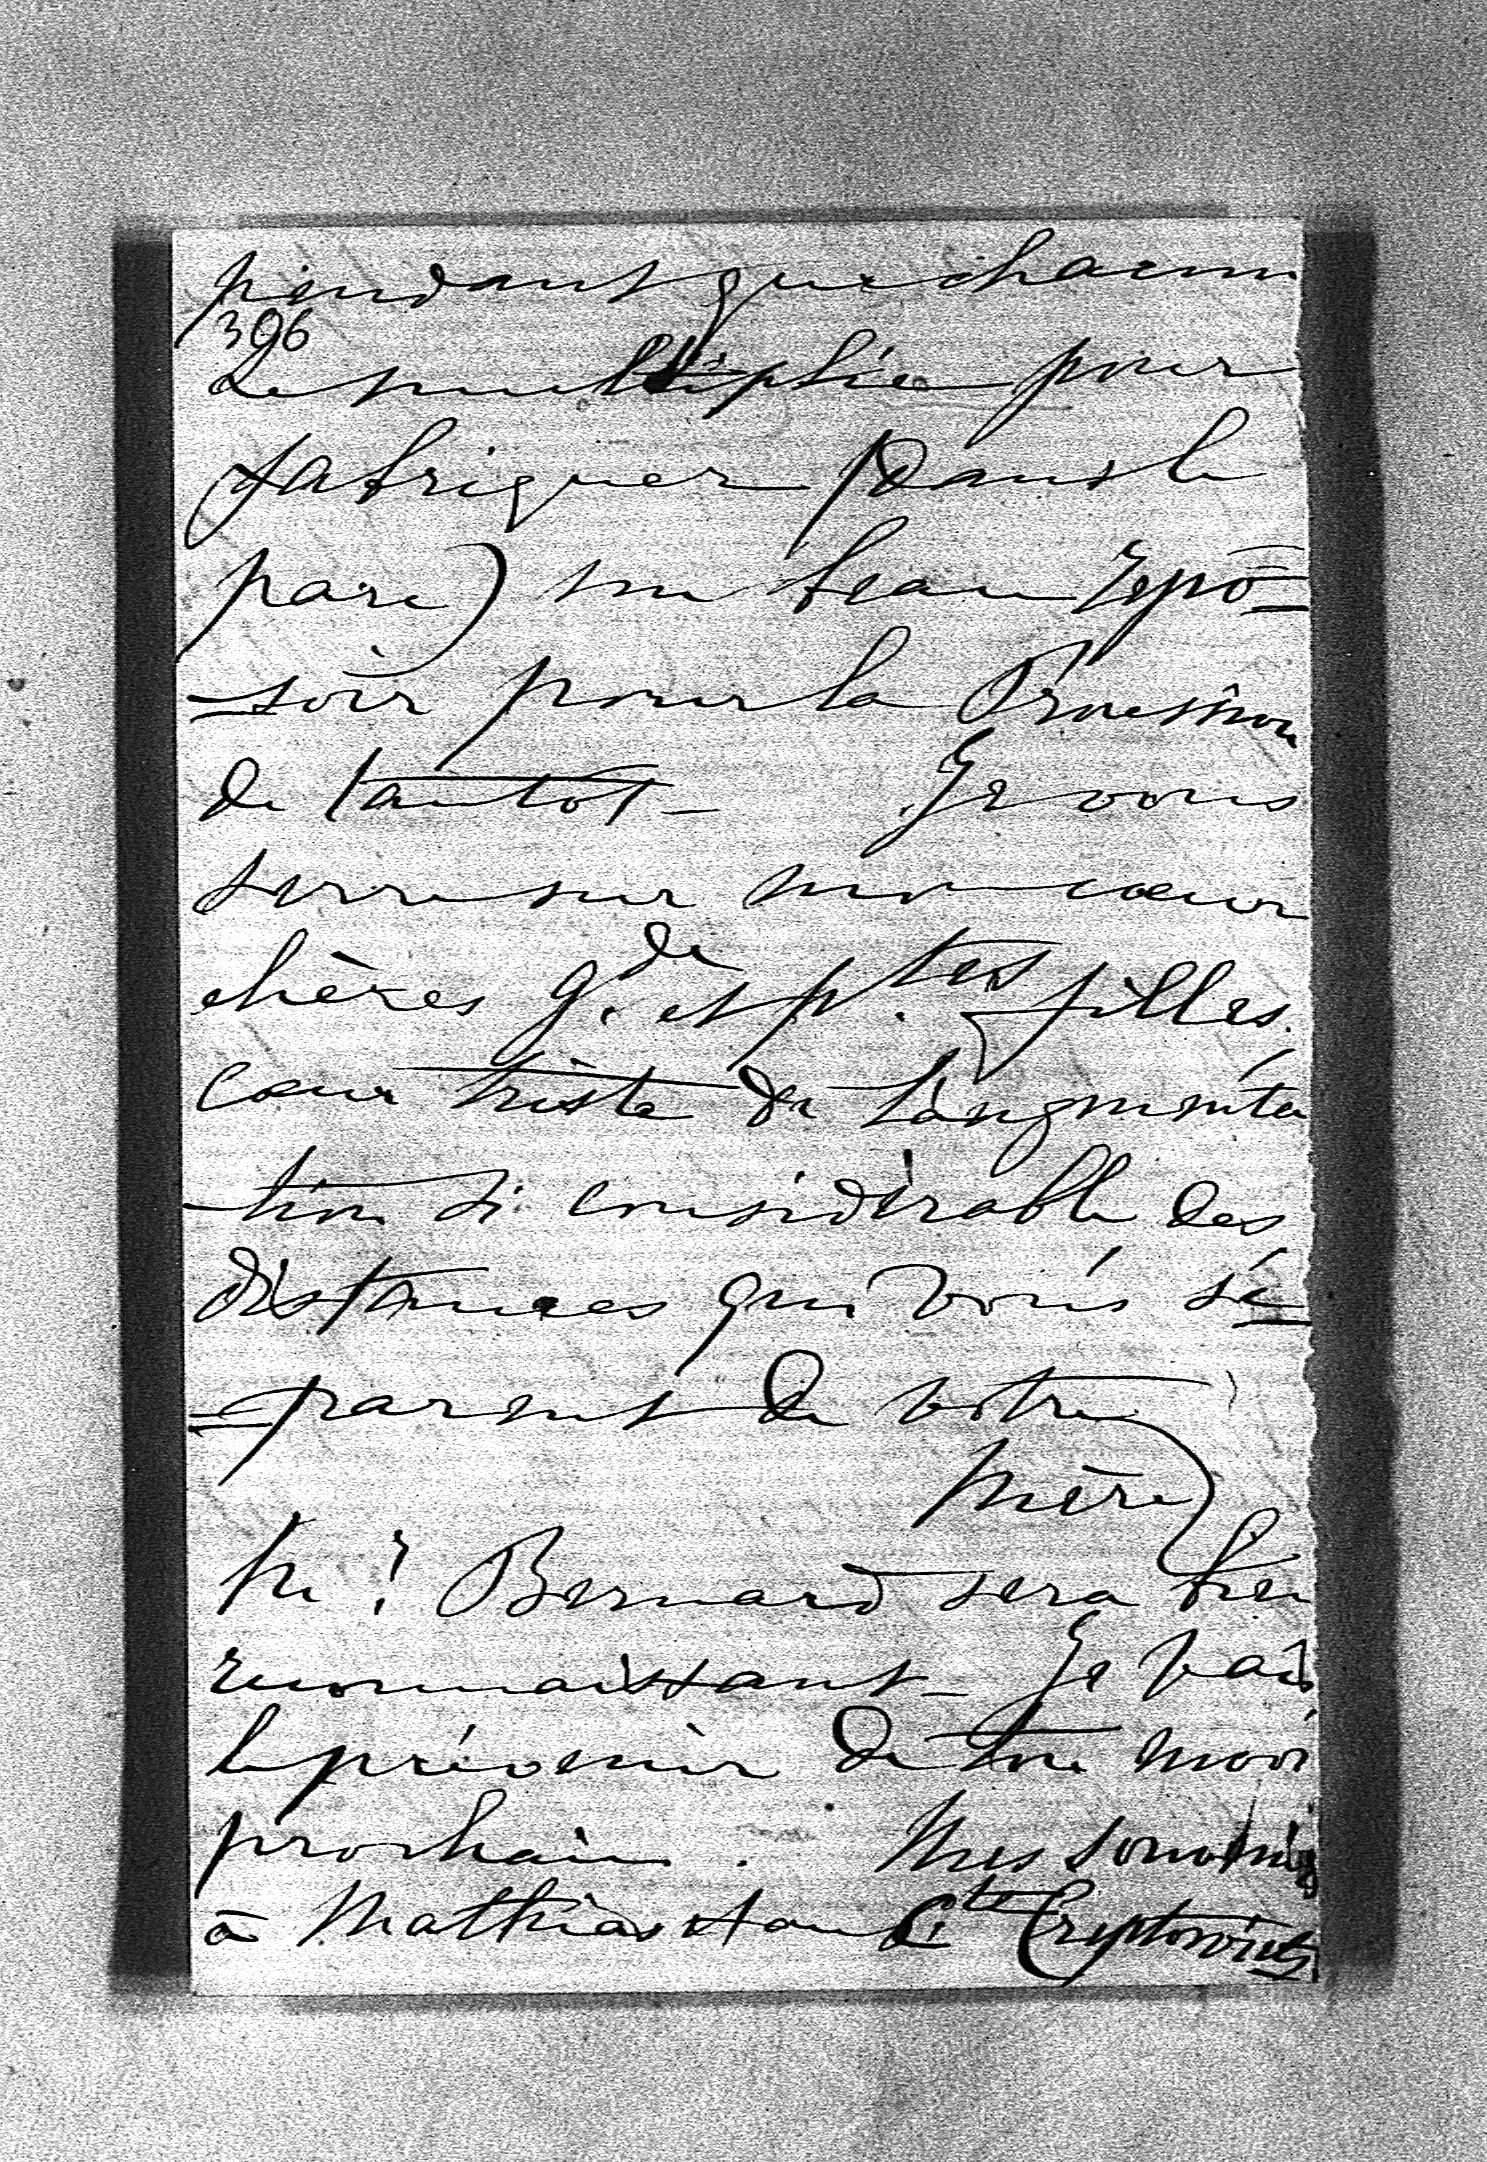 pendant que chacun
396
se multiplie pour
fabriquer (dans le
parc) un beau repo=
=soir pour la Procession
de tantot_ Je vous
serre sur mon cœur
chères g.de et p.tes filles.
cœur triste de l'augmenta
-tion si considérable des
distances qui vous sé=
=parent de votre
mère
Bernard sera bien
reconnaissant_ Je vais
le prévenir de moi
prochain. Mes
à Mathias et au Cte Creptowitz